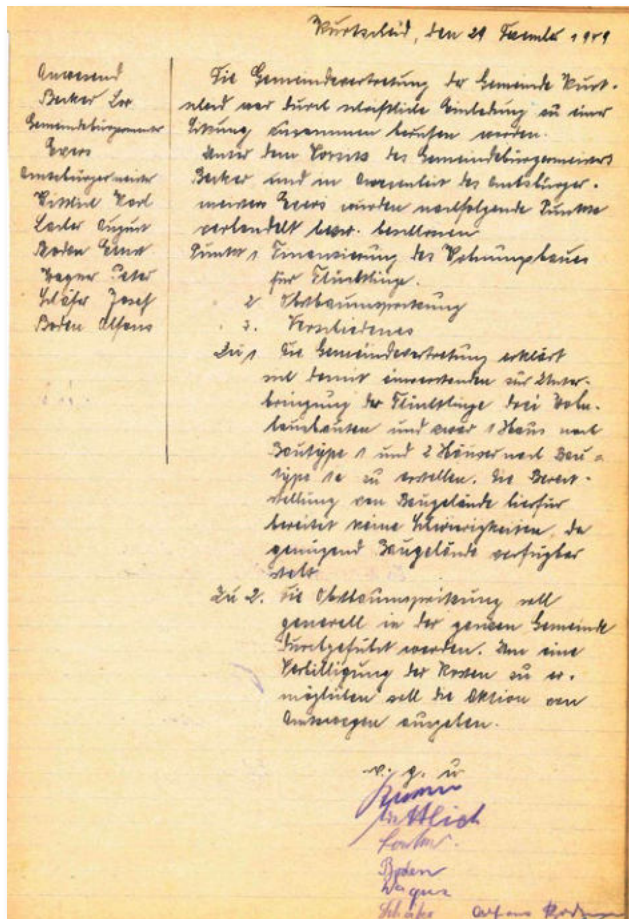 Kurtscheid, den 29 Dezember 1949
Anwesend
Becker
Gemeindebürgermeister
Evers
Amtsbürgermeister
Wittlich Karl
August
Boden
Wagner Peter
Schäfer Josef
Boden Alfons
Die Gemeindevertretung der Gemeinde Kurt-
scheid war durch schriftliche Einladung zu einer
Sitzung zusammen berufen worden.
Unter dem Vorsitz des Gemeindebürgermeisters
Becker und in Anwesenheit des Amtsbürger-
meisters Evers wurden nachfolgende Punkte
verhandelt bezw. beschlossen
Punkt 1 Finanzierung des Wohnungsbaues
für Flüchtlinge.
2 Obstbaumspritzung
3. Verschiedenes
Zu 1 Die Gemeindevertretung erklärt
sich damit einverstanden zur Unter-
bringung der Flüchtlinge drei Wohn-
hausbauten und zwar 1 Haus nach
Bautype 1 und 2 Häuser nach Bau-
type 1a zu erstellen. Die Bereit-
stellung von Baugelände hierfür
bereitet keine Schwierigkeiten, da
genügend Baugelände verfügbar
steht.
Zu 2. Die Obstbaumspritzung soll
generell in der ganzen Gemeinde
durchgeführt werden. Um eine
Verbilligung der Kosten zu er-
möglichen soll die Aktion von
Amtswegen ausgehen.
v. g. u
Wittlich
Boden
Wagner
Schäfer Alfons Boden